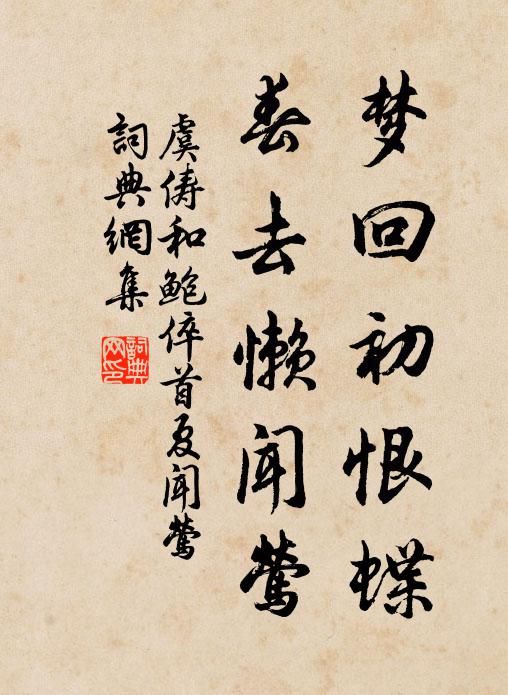 梦回初恨蝶
春去懒闻莺
虞俦和鲍倅首夏闻莺
詞典網集
詞典网印